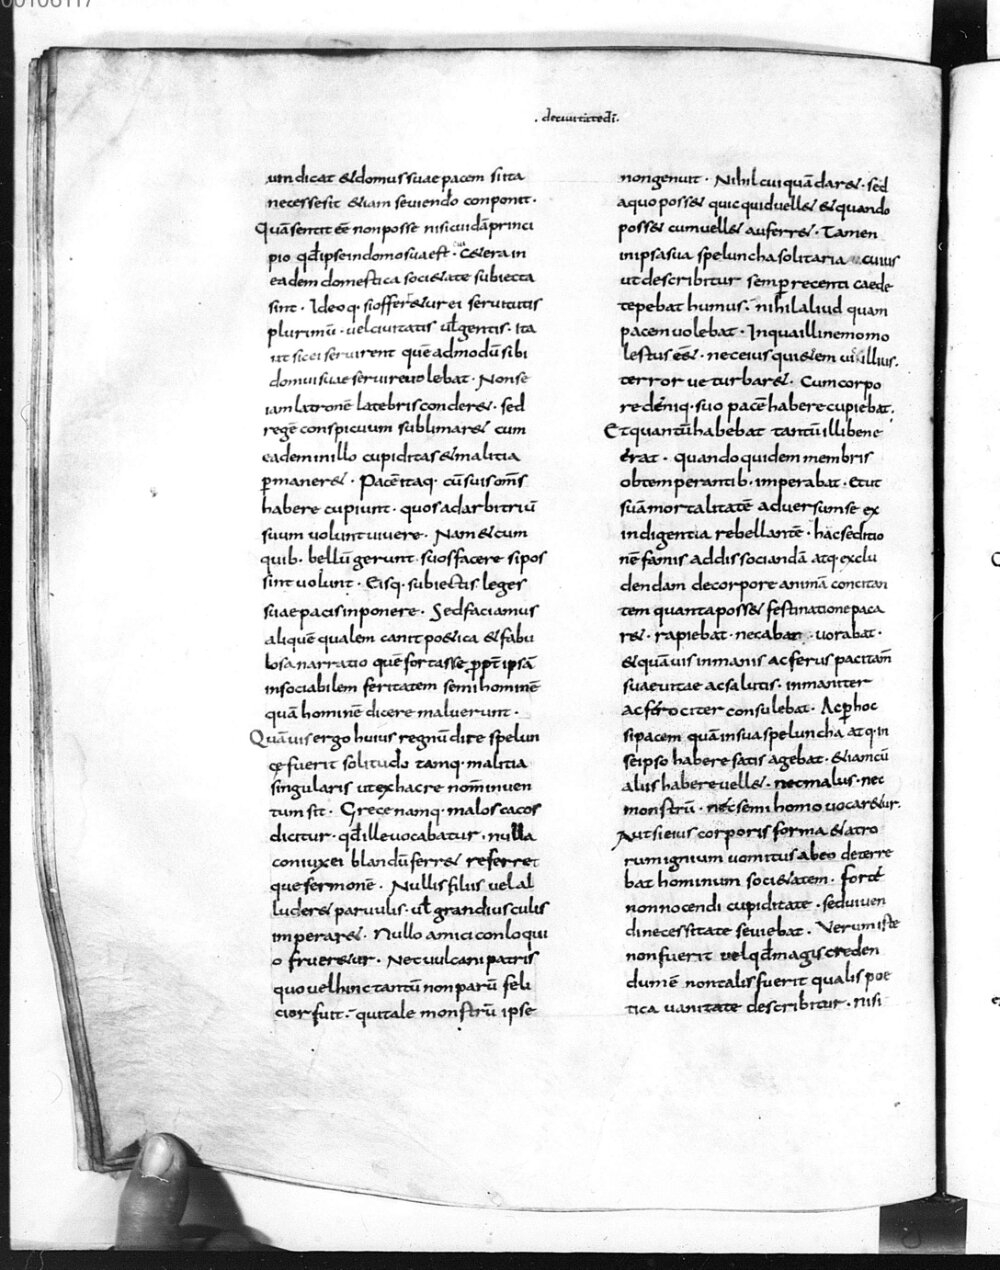 00106117
. deciuitatedī.
uindicat &domussuaepacem sitta
necessesit &iam seuiendo conponit·
Quāsentit eē nonposse nisicuidāprinci
pio qd̄ipseindomosuaest· C&erain
eadem domestica soci&ate subiecta
sint· Ideoq· sioffer&ur ei seruitutis
plurimū· uelciuitatis ul̄gentis· ita
ut sicei seruirent quēadmodūsibi
domuisuae seruireuolebat· Nonse
iamlatronē latebrisconder&· sed
regē conspicuum sublimar& cum
eademinillo cupiditas&malitia
p̄maner&· Pacēitaq· cūsuisom̄s
habere cupiunt· quosadarbitriū
suum uoluntuiuere· Nam&cum
quib· bellūgerunt· suosfacere sipos
sint uolunt· Eisq· subiectis leges
suaepacisinponere· Sedfaciamus
aliquē qualem canit po&ica &fabu
losa narratio quēfortasse ppt̄ ipsā
insociabilem feritatem semihominē
quā hominē dicere maluerunt·
Quāuisergo huius regnū dire spelun
cęfuerit solitudo tamq· malitia
singularis utexhacre nom̄inuen
tumsit· Grecenamq· malos cacos
dicitur· qd̄illeuocabatur· nulla
coniuxei blandūferr& referret
quesermonē· Nullis filiis uelal
luder& paruulis· ul̄ grandiusculis
imperar&· Nullo amici conloqui
o fruer&ur· Necuulcani patris
quouelhinctantū nonparū feli
cior fuit· quitale monstrū ipse
nongenuit· Nihil cuiquā dar&· sed
aquo poss& quicquiduell& &quando
poss& cumuell& auferr&· Tamen
inipsasua speluncha solitaria cuius
ut describitur semp̄ recenti caede
tepebat humus· nihilaliud quam
pacemuolebat· Inquaillinemomo
lestus ēss&· neceius quiētem uisillius·
terror ue turbar&· Cumcorpo
redeniq· suo pacē habere cupiebat·
Etquantūhabebat tantūillibene
erat· quando quidem membris
obtemperantib· imperabat· Etut
suāmortalitatē aduersumse ex
indigentia rebellantē· hācseditio
nē famis addissociandā atq· exclu
dendam decorpore animā concitan
tem quantaposs& festinationepaca
r&· rapiebat· necabat· uorabat·
&quāuis inmanis ac ferus pacitam̄
suaeuitae acsalutis· inmaniter
ac ferociter consulebat· Ac p̄hoc
sipacem quāinsuaspeluncha atq· in
seipso habere satis agebat· &iamcū
aliis habereuell&· necmalus· nec
monstrū· nec semi homo uocar&ur·
Autsieius corporis forma &atro
rumignium uomitus abeo deterre
bat hominum soci&atem· forte
nonnocendi cupiditate· seduiuen
dinecessitate seuiebat· Verumiste
nonfuerit uelqd̄magis creden
dumē nontalisfuerit qualis poe
tica uanitate describitur· nisi